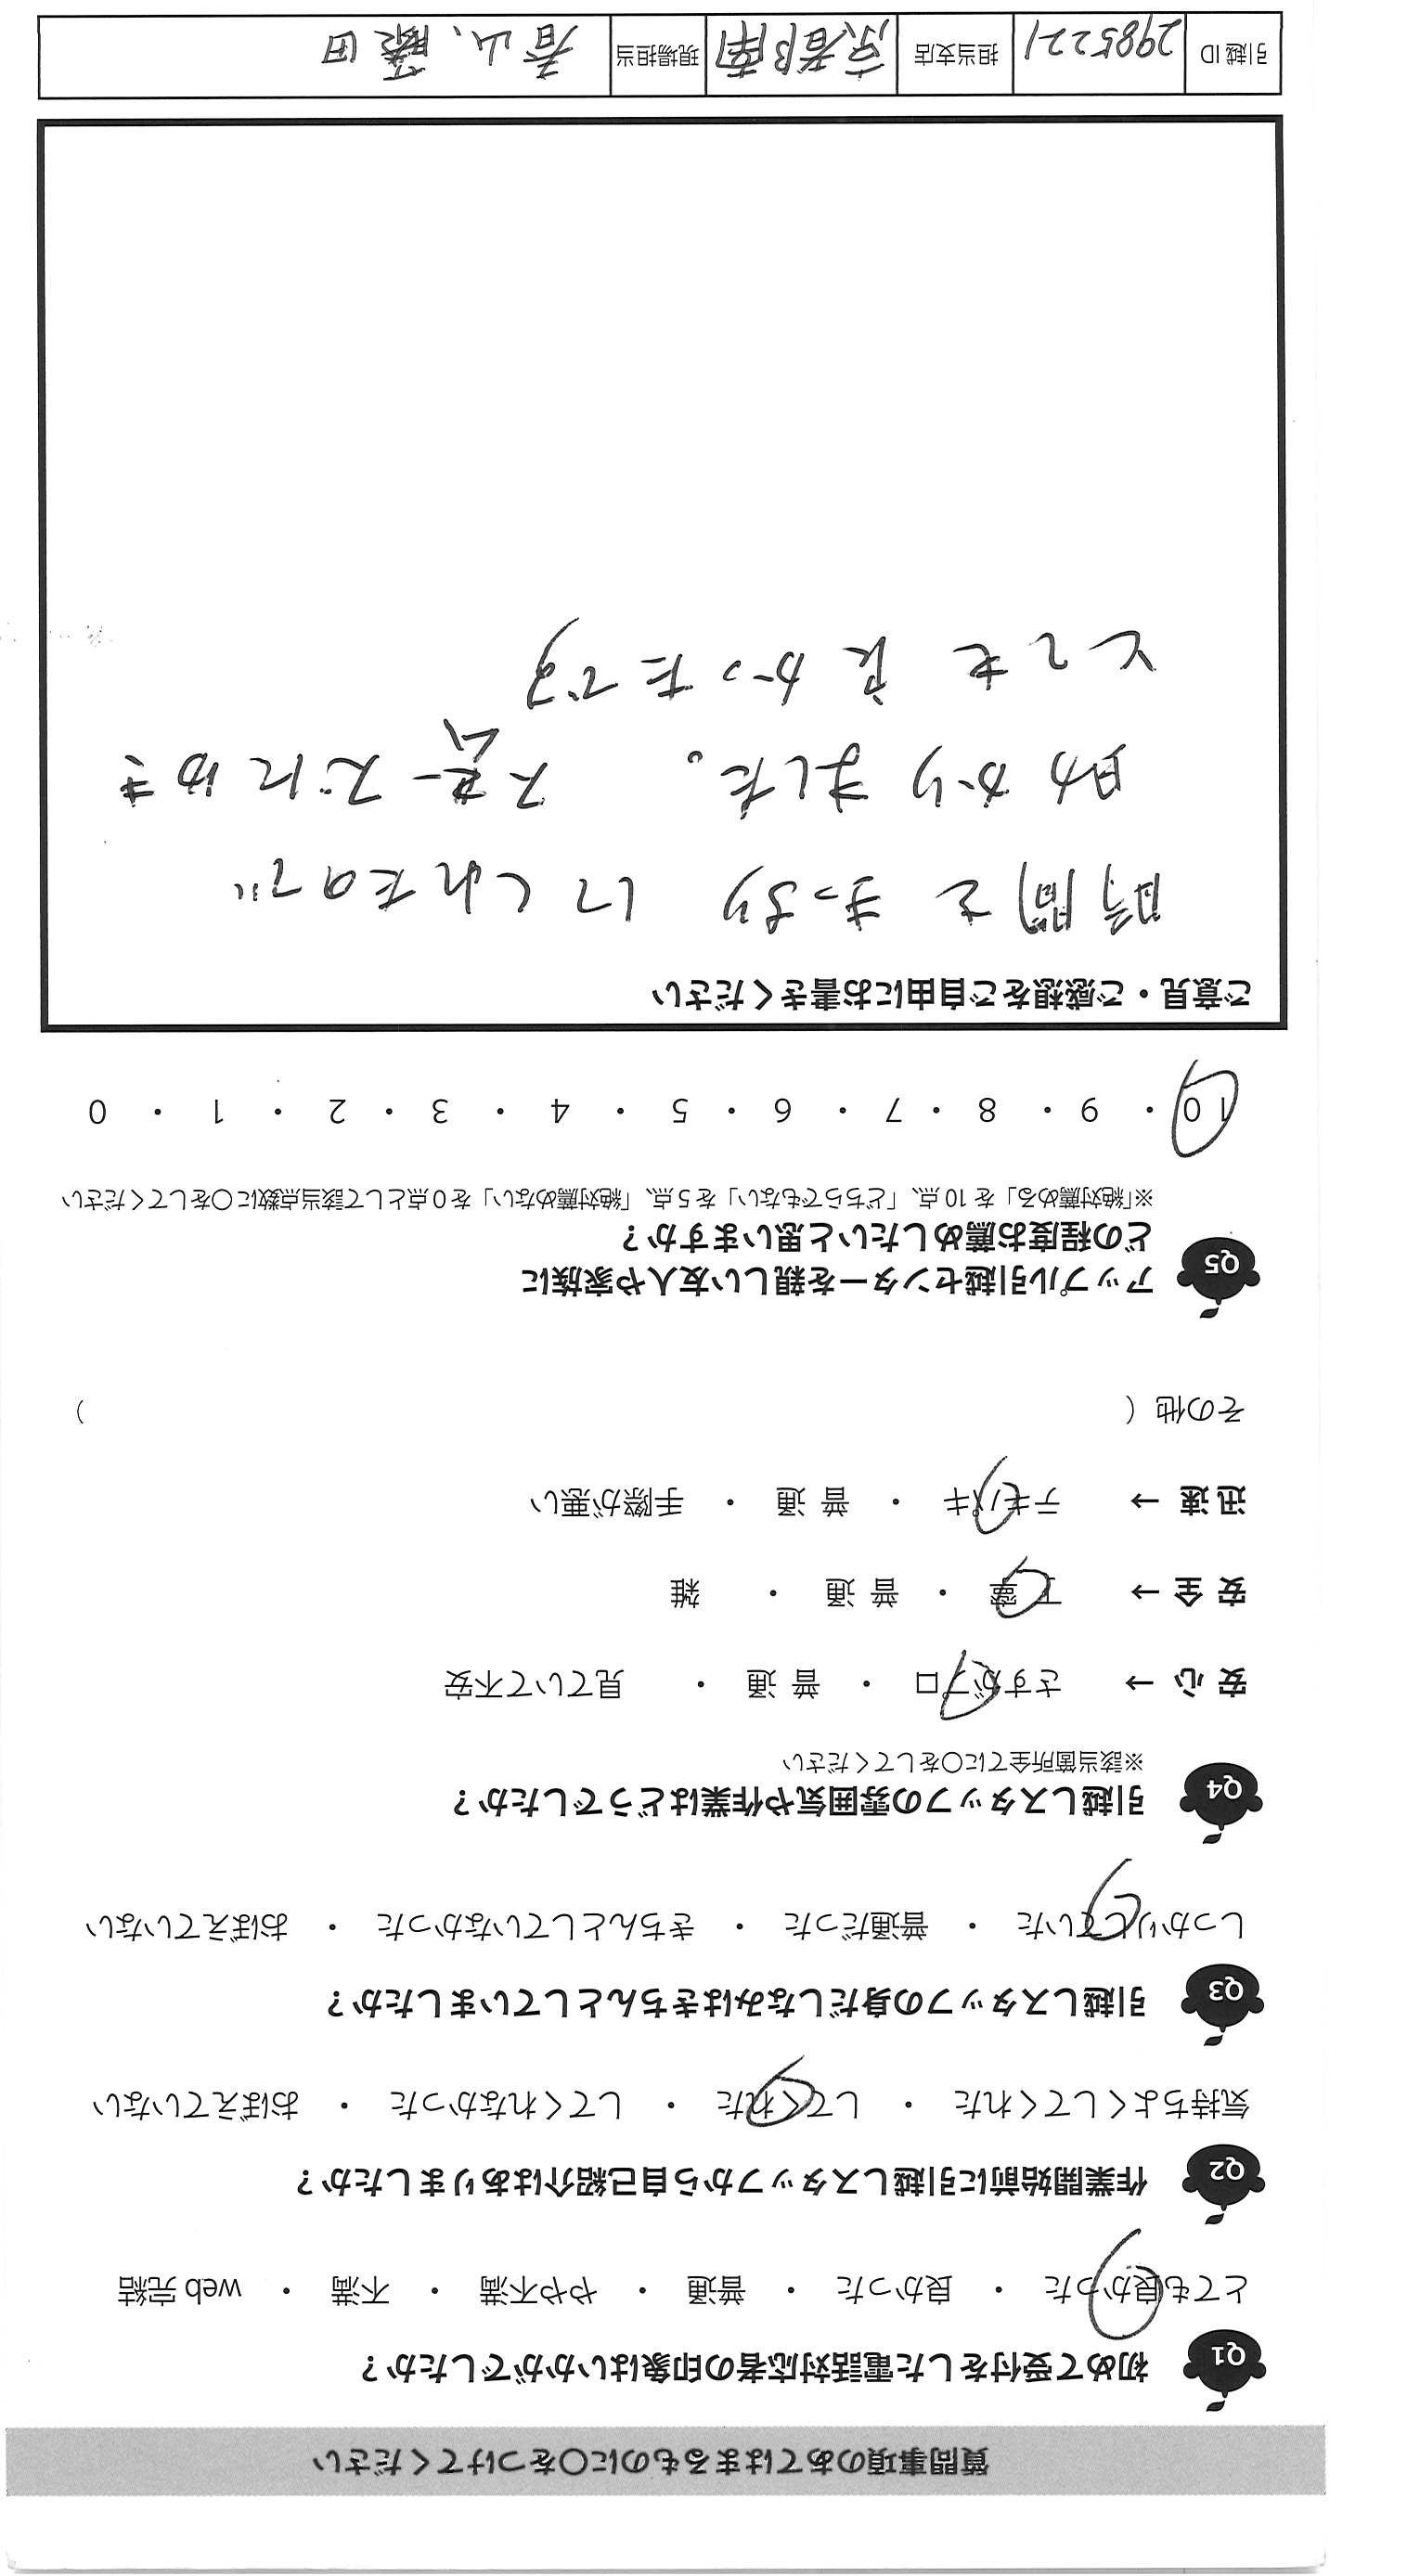 質問事項のあてはまるものに〇をつけてください
Q1 初めて受付をした電話対応者の印象はいかがでしたか？
とても良かった ・ 良かった ・ 普通 ・ やや不満 ・ 不満 ・ web 完結
Q2 作業開始前に引越しスタッフから自己紹介はありましたか？
気持ちよくしてくれた ・ してくれた ・ してくれなかった ・ おぼえていない
Q3 引越しスタッフの身だしなみはきちんとしていましたか？
しっかりしていた ・ 普通だった ・ きちんとしていなかった ・ おぼえていない
Q4 引越しスタッフの雰囲気や作業はどうでしたか？
※該当箇所全てに〇をしてください
安 心 → さすがプロ ・ 普 通 ・ 見ていて不安
安 全 → 丁 寧 ・ 普 通 ・ 雑
迅 速 → テキパキ ・ 普 通 ・ 手際が悪い
その他（ ）
Q5 アップル引越センターを親しい友人や家族に
どの程度お薦めしたいと思いますか？
※「絶対薦める」を 10 点、「どちらでもない」を 5 点、「絶対薦めない」を 0 点として該当点数に〇をしてください
10 ・ 9 ・ 8 ・ 7 ・ 6 ・ 5 ・ 4 ・ 3 ・ 2 ・ 1 ・ 0
ご意見・ご感想をご自由にお書きください
時間をきっちり してくれたので
助かりました。 スムーズにゆき
とても良かったです
引越 ID 2985221 担当支店 京都南 現場担当 香山、藤田